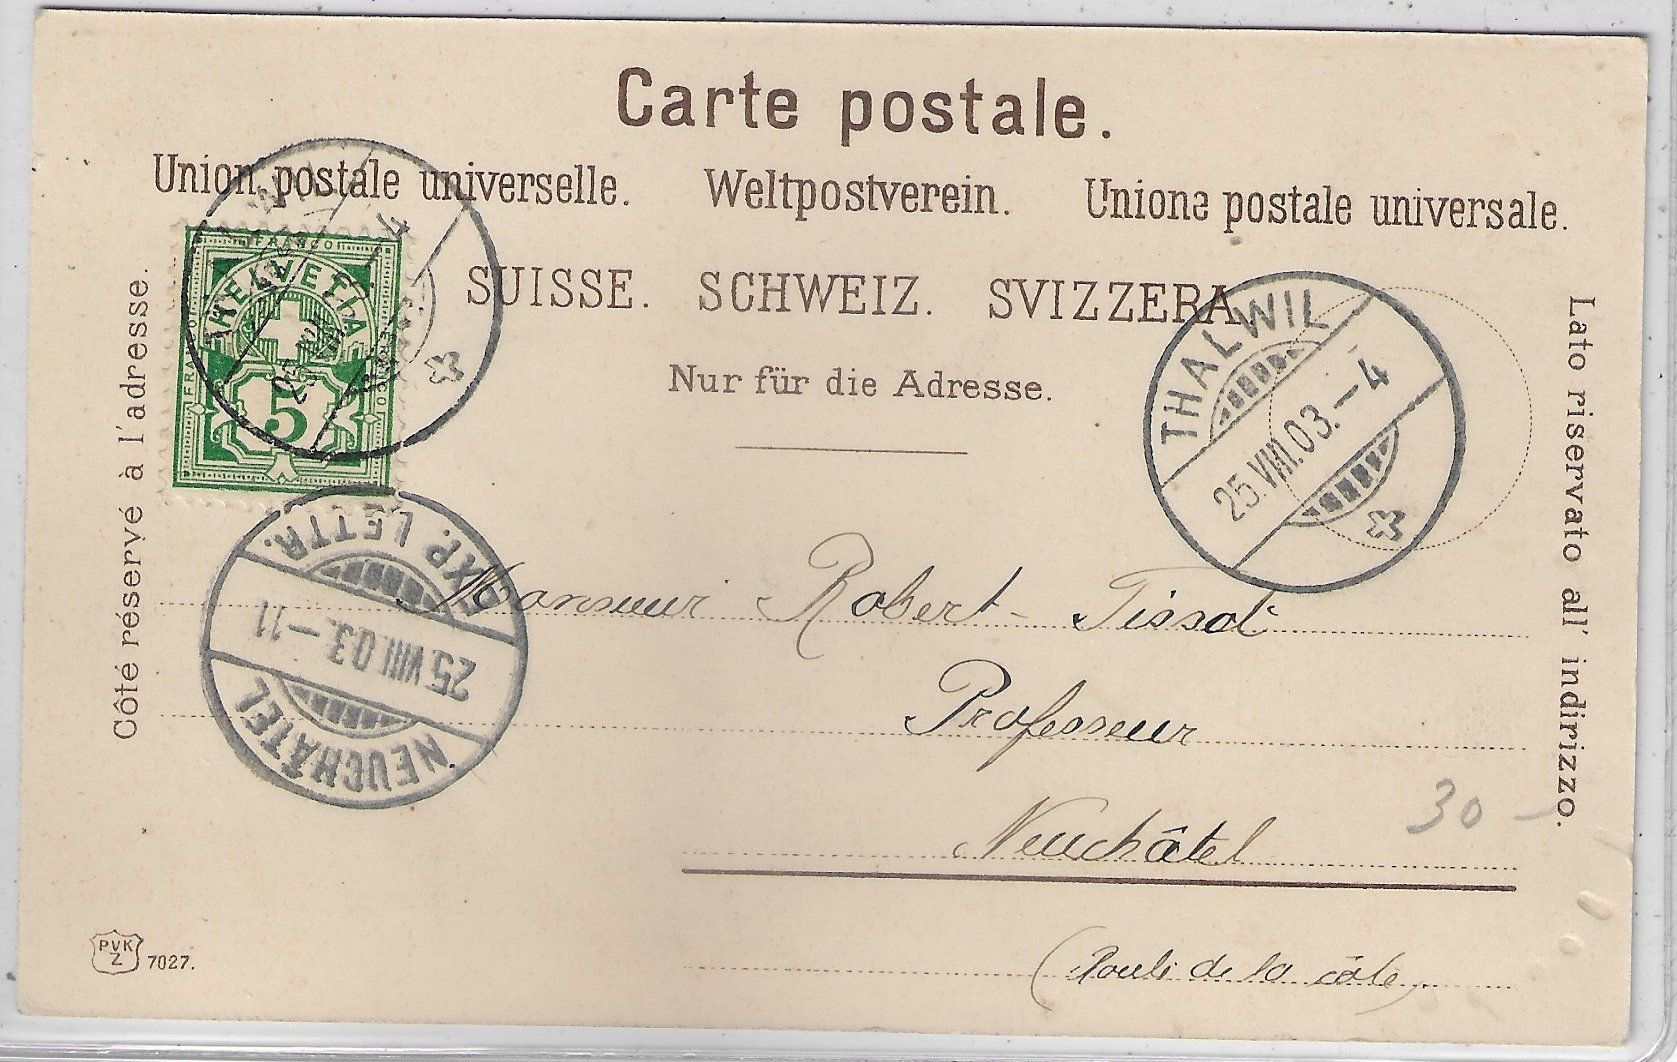 Carte postale.
Union postale universelle. Weltpostverein. Unione postale universale.
SUISSE. SCHWEIZ. SVIZZERA
Nur für die Adresse.
Côté réservé à l'adresse.
Lato riservato all' indirizzo.
FRANCO
HELVETIA
5
THALWIL
25.VIII.03.-4
EXP. LETTR.
25.VIII.03.-11
NEUCHÂTEL
Monsieur Robert-Tissot
Professeur
Neuchâtel
30 -
(Route de la côte).
PVK
Z
7027.